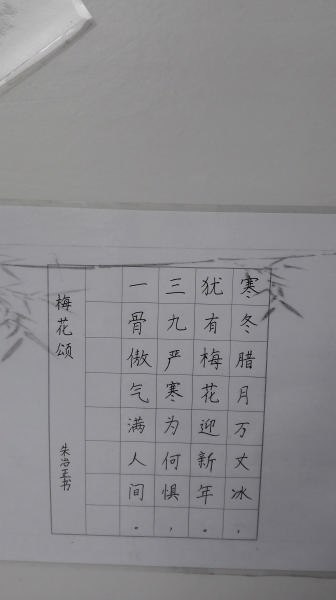 寒冬腊月万丈冰，
犹有梅花迎新年。
三九严寒为何惧，
一骨傲气满人间。
梅花颂
朱治玉书